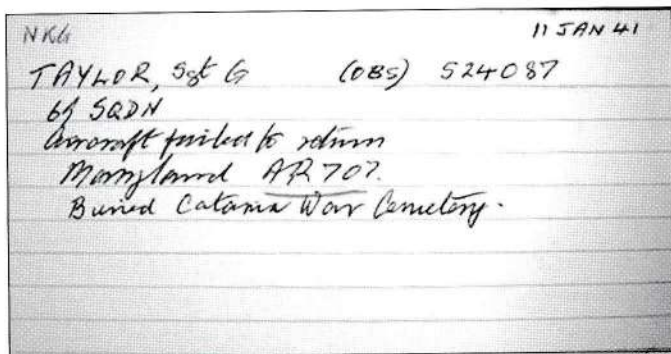 NKG 11 JAN 41
TAYLOR, Sgt G (OBS) 524087
69 SQDN
Aircraft failed to return
Maryland AR707.
Buried Catania War Cemetery.